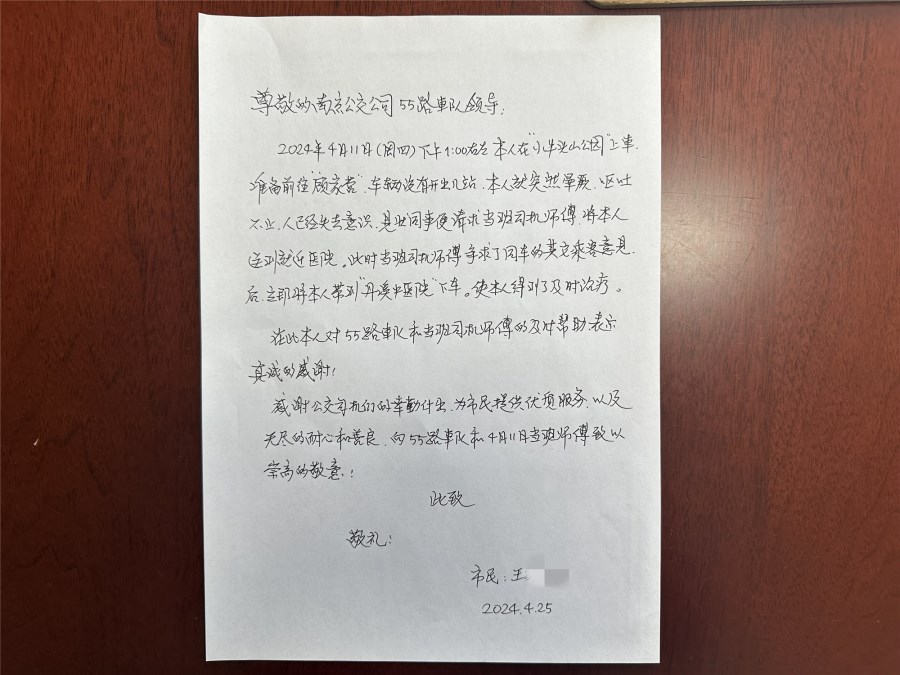 尊敬的南京公交公司55路车队领导:
2024年4月11日(周四)下午1:00左右 本人在"小牛头山公园"上车,
准备前往"顾家营",车辆没有开出几站,本人就突然晕厥,呕吐
不止,人已经失去意识,是业同事便请求当班司机师傅,将本人
送到就近医院。此时当班司机师傅争求了同车的其它乘客意见,
后,立即将本人带到"丹溪中医院"下车。使本人得到了及时治疗。
在此本人对55路车队和当班司机师傅的及时帮助表示
真诚的感谢!
感谢公交司机们的辛勤付出,为市民提供优质服务,以及
无尽的耐心和善良,向55路车队和4月11日当班师傅致以
崇高的敬意!
此致
敬礼!
市民:王
2024.4.25